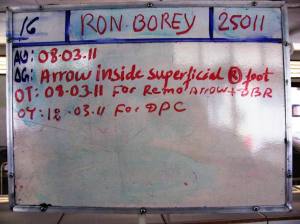 16 RON. BOREY 25011
AD: 08.03.11
DG: Arrow inside superficial Ⓡ foot
OT: 08-03.11 For Remo Arrow + DBR
OT: 12.03.11 For DPC